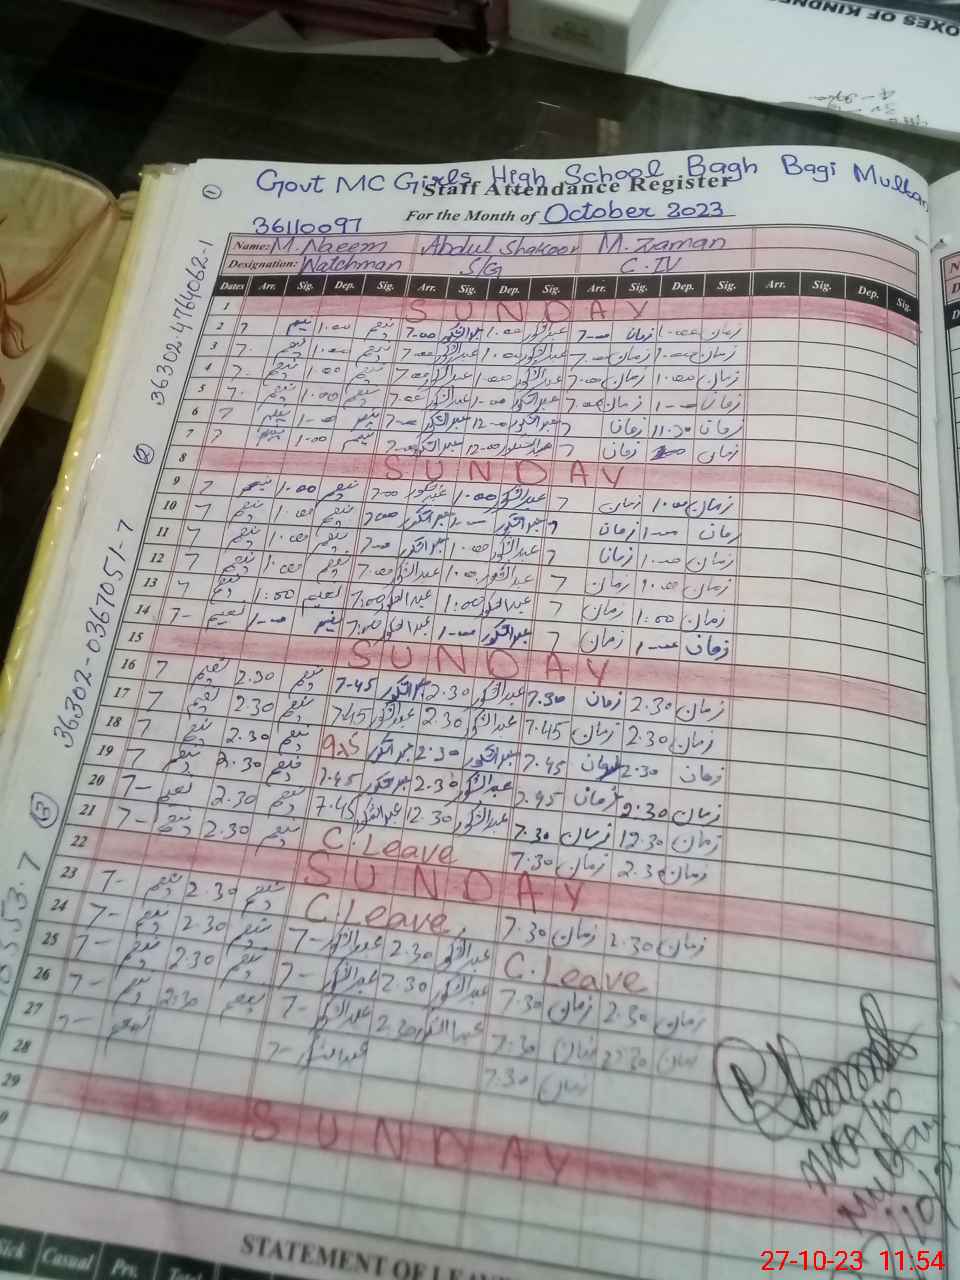 OXES OF KINDNE
Govt MC Girls High School Bagh Bagi Multan
Staff Attendance Register
For the Month of October 2023
36110097
Name: M. Naeem Abdul Shakoor M. Zaman
Designation: Watchman S/G C.IV
Dates Arr. Sig. Dep. Sig. Arr. Sig. Dep. Sig. Arr. Sig. Dep. Sig. Arr. Sig. Dep. Sig.
1 SUNDAY
2 7 نعیم 1.00 نعیم 7.00 عبدالشکور 1.00 عبدالشکور 7.00 زمان 1.00 زمان
3 7. نعیم 1.00 نعیم 7.00 عبدالشکور 1.00 عبدالشکور 7.00 زمان 1.00 زمان
4 7. نعیم 1.00 نعیم 7.00 عبدالشکور 1.00 عبدالشکور 7.00 زمان 1.00 زمان
5 7. نعیم 1.00 نعیم 7.00 عبدالشکور 1.00 عبدالشکور 7.00 زمان 1.00 زمان
6 7 نعیم 1.00 نعیم 7.00 عبدالشکور 12.00 عبدالشکور 7 زمان 11.30 زمان
7 7 نعیم 1.00 نعیم 7.00 عبدالشکور 12.00 عبدالشکور 7 زمان زمان
8 SUNDAY
9 7 نعیم 1.00 نعیم 7.00 عبدالشکور 1.00 عبدالشکور 7 زمان 1.00 زمان
10 7 نعیم 1.00 نعیم 7.00 عبدالشکور 1.00 عبدالشکور 7 زمان 1.00 زمان
11 7 نعیم 1.00 نعیم 7.00 عبدالشکور 1.00 عبدالشکور 7 زمان 1.00 زمان
12 7 نعیم 1.00 نعیم 7.00 عبدالشکور 1.00 عبدالشکور 7 زمان 1.00 زمان
13 7 نعیم 1:00 نعیم 7:00 عبدالشکور 1:00 عبدالشکور 7 زمان 1:00 زمان
14 7- نعیم 1.00 نعیم 7.00 عبدالشکور 1.00 عبدالشکور 7 زمان 1.00 زمان
15 SUNDAY
16 7 نعیم 2.30 نعیم 7-45 عبدالشکور 2.30 عبدالشکور 7.30 زمان 2.30 زمان
17 7 نعیم 2.30 نعیم 7.45 عبدالشکور 2.30 عبدالشکور 7.45 زمان 2.30 زمان
18 7 نعیم 2.30 نعیم عبدالشکور 2.30 عبدالشکور 7.45 زمان 2.30 زمان
19 7 نعیم 2.30 نعیم 7.45 عبدالشکور 2.30 عبدالشکور 7.45 زمان 2:30 زمان
20 7- نعیم 2.30 نعیم 7.45 عبدالشکور 12.30 عبدالشکور 7.30 زمان 12.30 زمان
21 7- نعیم 2.30 نعیم C.Leave 7.30 زمان 2.30 زمان
22 SUNDAY
23 7- نعیم 2.30 نعیم C.Leave 7.30 زمان 2.30 زمان
24 7- نعیم 2.30 نعیم 7- عبدالشکور 2.30 عبدالشکور C.Leave
25 7- نعیم 2.30 نعیم 7- عبدالشکور 2.30 عبدالشکور 7.30 زمان 2.30 زمان
26 7- نعیم 2:30 نعیم 7- عبدالشکور 2.30 عبدالشکور 7.30 زمان 2.30 زمان
27 7- نعیم 7- عبدالشکور 7.30 زمان
28
29 SUNDAY
① 36302-4764062-1
② 36302-0367051-7
③
STATEMENT OF LEAVE
Sick Casual Prv. Total
27-10-23 11:54